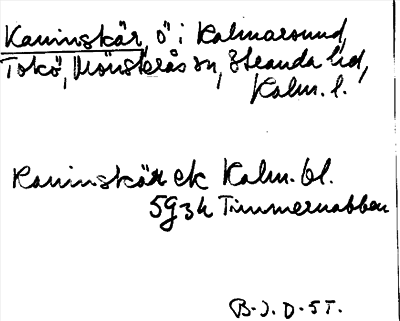 Kaninskär, ö i Kalmarsund,
Tokö, Mönsterås sn, Stranda hd,
Kalm. l.
Kaninskär ek Kalm. bl.
5g3h Timmernabben
B.I.D.-5T.